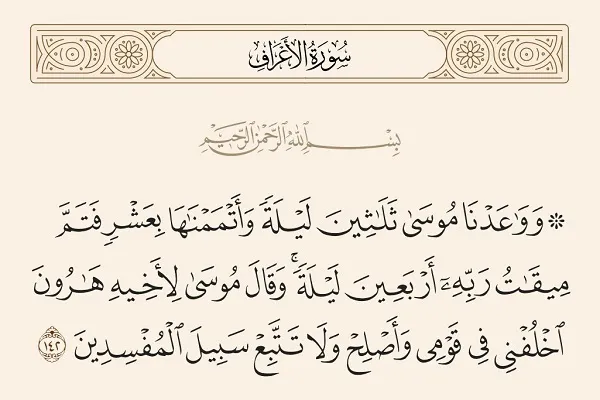 سُورَةُ الأَعْرَافِ
بِسْمِ ٱللَّهِ ٱلرَّحْمَٰنِ ٱلرَّحِيمِ
۞ وَوَٰعَدْنَا مُوسَىٰ ثَلَٰثِينَ لَيْلَةً وَأَتْمَمْنَٰهَا بِعَشْرٍ فَتَمَّ
مِيقَٰتُ رَبِّهِۦٓ أَرْبَعِينَ لَيْلَةً ۚ وَقَالَ مُوسَىٰ لِأَخِيهِ هَٰرُونَ
ٱخْلُفْنِى فِى قَوْمِى وَأَصْلِحْ وَلَا تَتَّبِعْ سَبِيلَ ٱلْمُفْسِدِينَ ١٤٢